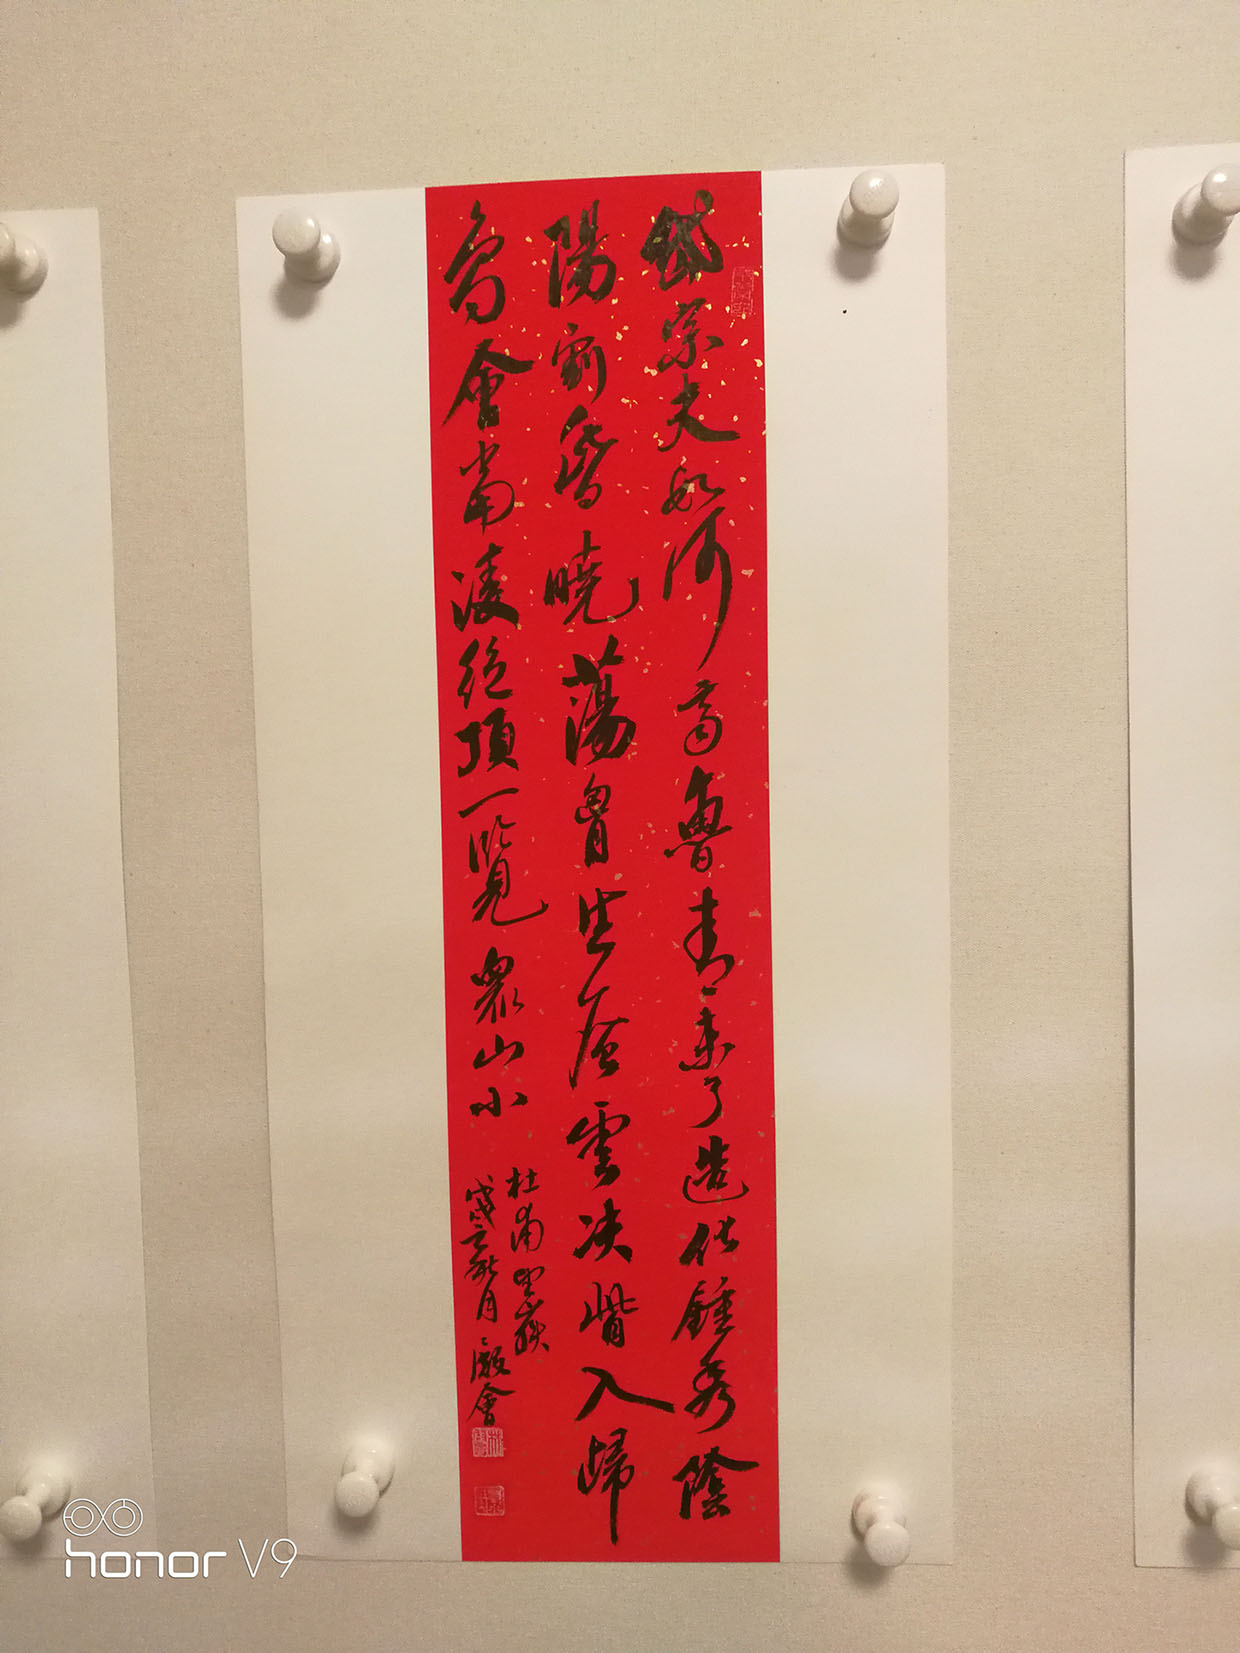 岱宗夫如何齊魯青未了造化鍾秀陰
陽割昏曉蕩胷生層雲决眥入歸
鳥會當凌絕頂一覽眾山小
杜甫望嶽
月
會
honor V9